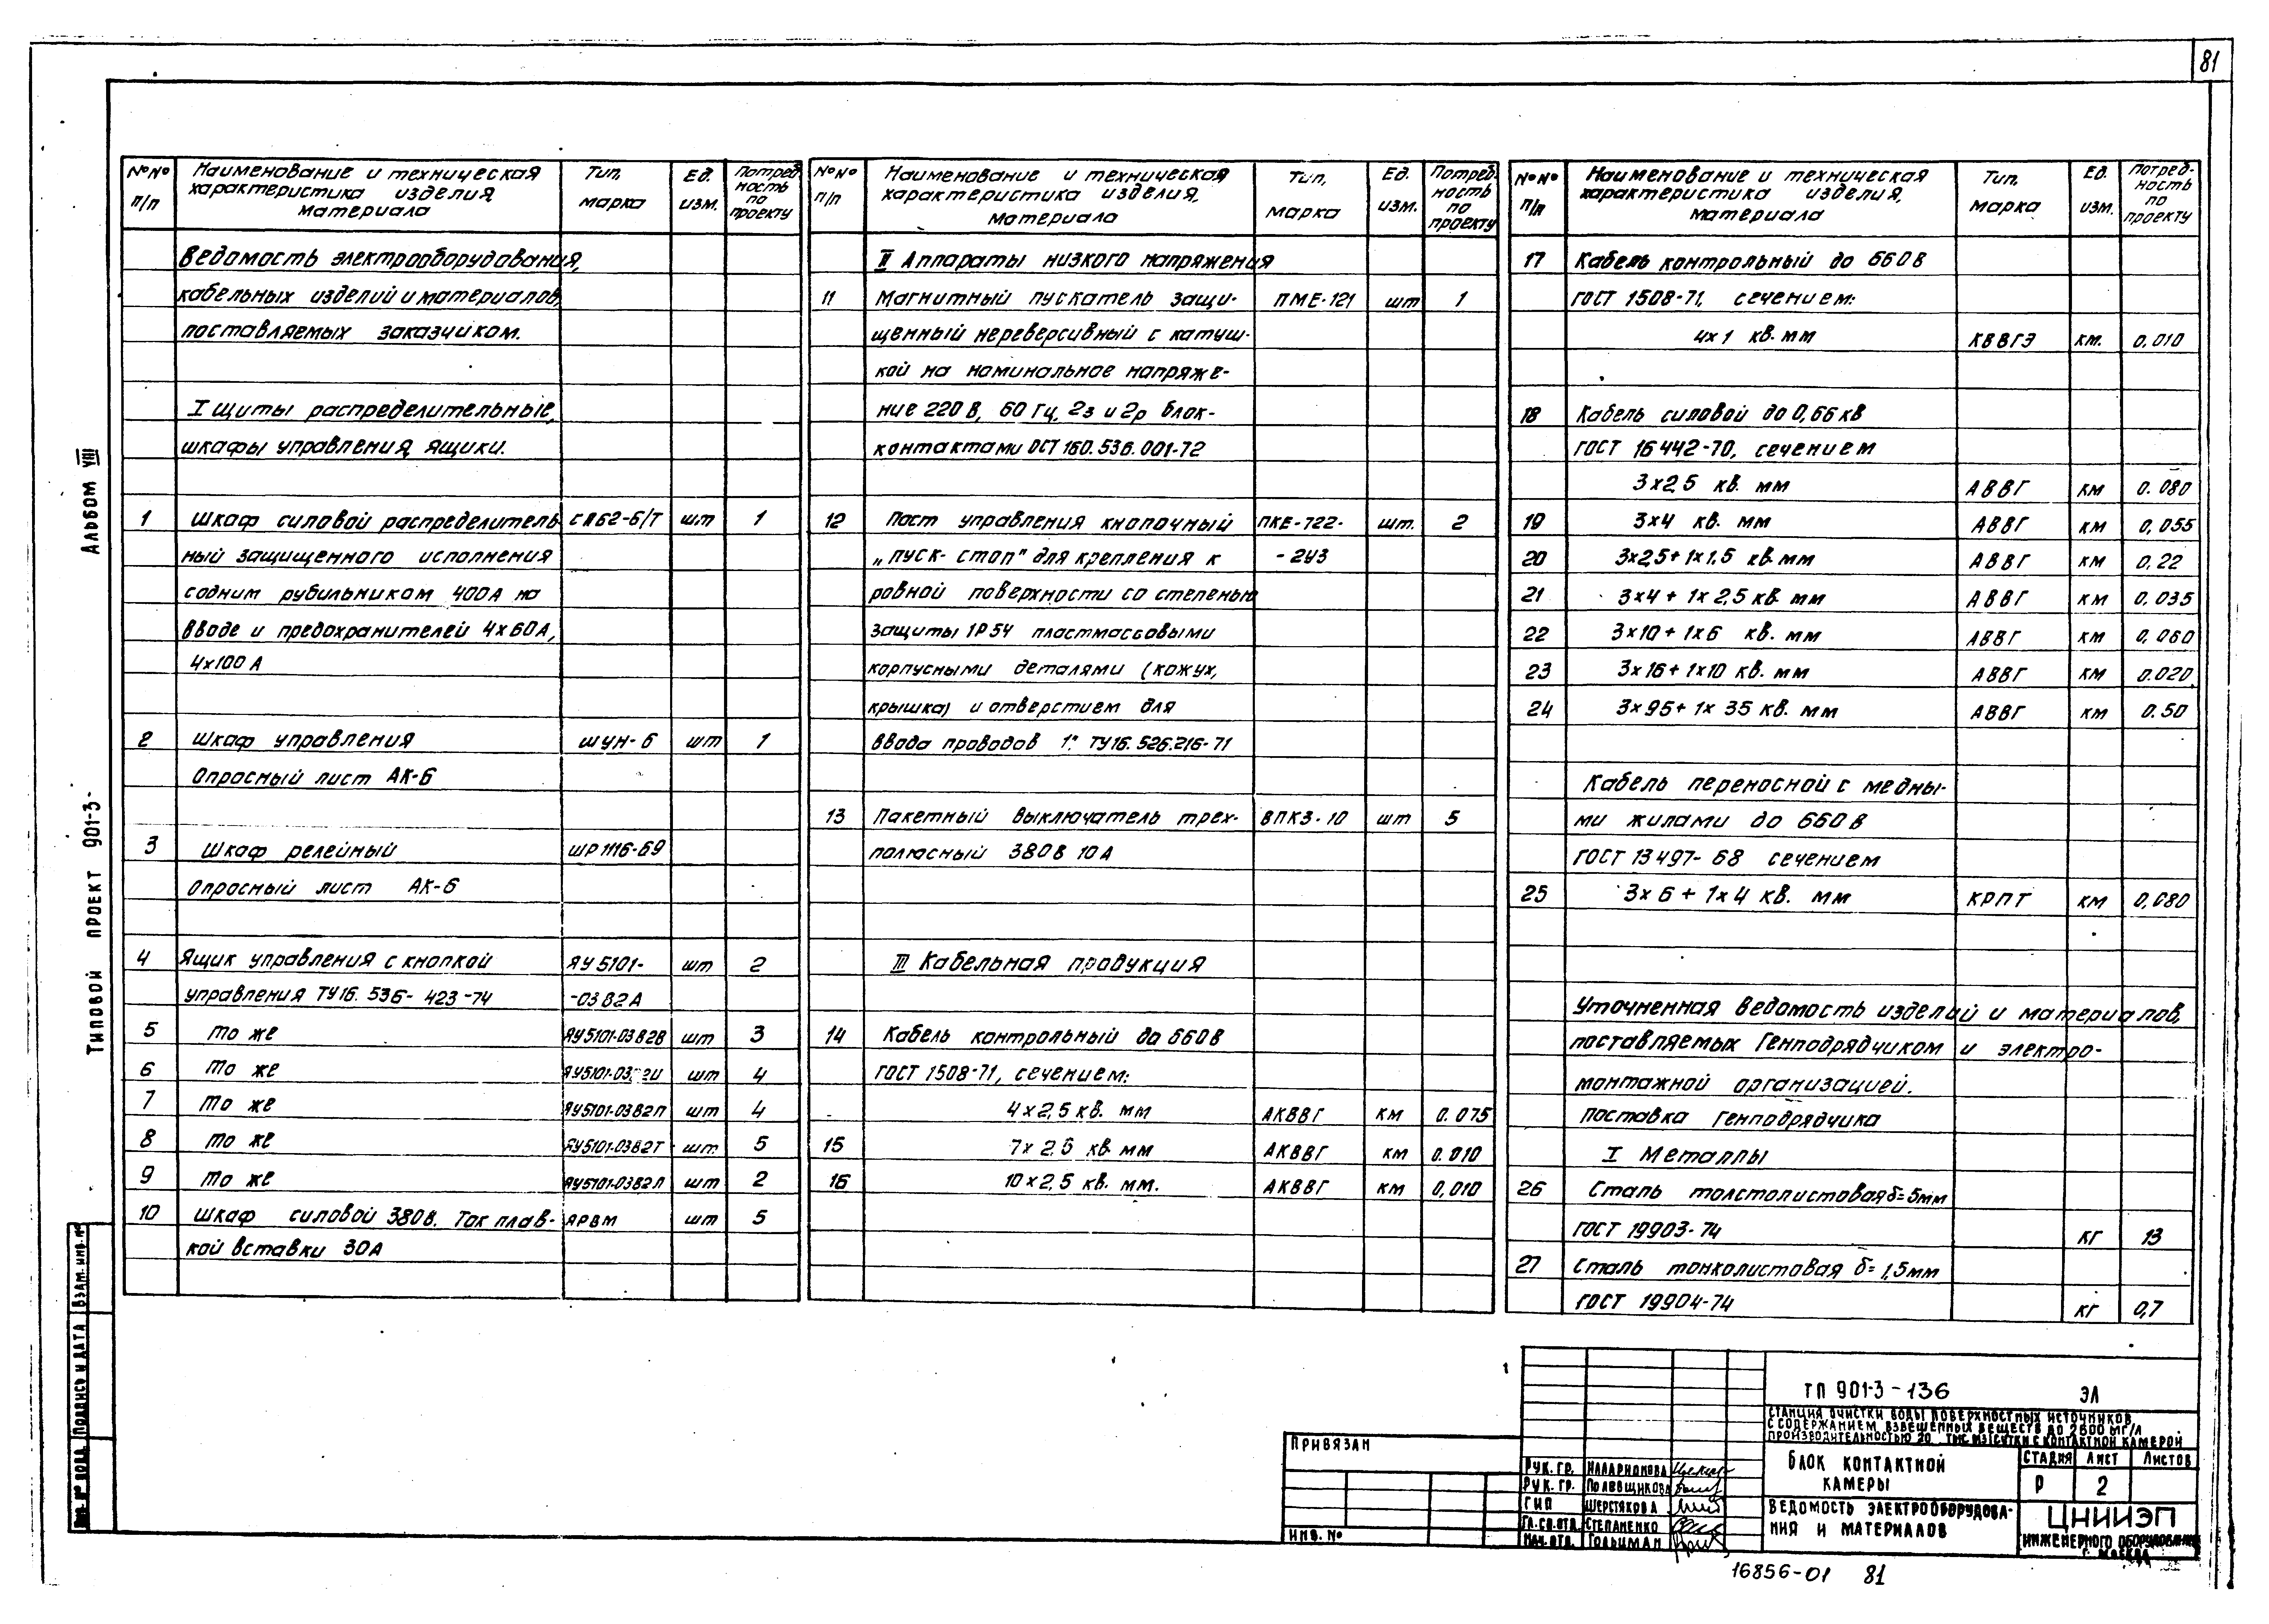 81
Альбом VIII
Типовой проект 901-3-
№№ п/п
Наименование и техническая характеристика изделия, материала
Тип, марка
Ед. изм.
Потребность по проекту
Ведомость электрооборудования,
кабельных изделий и материалов,
поставляемых заказчиком.
I Щиты распределительные,
шкафы управления, ящики.
1 Шкаф силовой распределитель СП62-6/Т шт 1
ный защищенного исполнения
с одним рубильником 400А на
вводе и предохранителей 4х60А,
4х100А
2 Шкаф управления ШУН-6 шт 1
Опросный лист АК-6
3 Шкаф релейный ШР1116-69
Опросный лист АК-6
4 Ящик управления с кнопкой ЯУ5101- шт 2
управления ТУ16.536-423-74 -0382А
5 То же ЯУ5101-0382В шт 3
6 То же шт 4
7 То же ЯУ5101-0382П шт 4
8 То же ЯУ5101-0382Т шт 5
9 То же ЯУ5101-0382Л шт 2
10 Шкаф силовой 380В. Ток плав- ЯРВМ шт 5
кой вставки 30А
№№ п/п
Наименование и техническая характеристика изделия, материала
Тип, марка
Ед. изм.
Потребность по проекту
II Аппараты низкого напряжения
11 Магнитный пускатель защи- ПМЕ-121 шт 1
щенный нереверсивный с катуш-
кой на номинальное напряже-
ние 220В, 60Гц, 2з и 2р блок-
контактами ОСТ 160.536.001-72
12 Пост управления кнопочный ПКЕ-722- шт. 2
„пуск-стоп" для крепления к -2У3
ровной поверхности со степенью
защиты IP54 пластмассовыми
корпусными деталями (кожух,
крышка) и отверстием для
ввода проводов 1" ТУ16.526.216-71
13 Пакетный выключатель трех- ВПК3-10 шт 5
полюсный 380В 10А
III Кабельная продукция
14 Кабель контрольный до 660В
ГОСТ 1508-71, сечением:
4х2,5 кв. мм АКВВГ км 0.075
15 7х2,5 кв мм АКВВГ км 0.010
16 10х2,5 кв. мм. АКВВГ км 0,010
№№ п/п
Наименование и техническая характеристика изделия, материала
Тип, марка
Ед. изм.
Потребность по проекту
17 Кабель контрольный до 660В
ГОСТ 1508-71, сечением:
4х1 кв. мм КВВГЭ км. 0,010
18 Кабель силовой до 0,66кв
ГОСТ 16442-70, сечением
3х2,5 кв. мм АВВГ км 0.080
19 3х4 кв. мм АВВГ км 0,055
20 3х2,5+1х1,5 кв.мм АВВГ км 0,22
21 3х4+1х2,5 кв. мм АВВГ км 0,035
22 3х10+1х6 кв. мм АВВГ км 0,060
23 3х16+1х10 кв. мм АВВГ км 0.020
24 3х95+1х35 кв. мм АВВГ км 0.50
Кабель переносной с медны-
ми жилами до 660В
ГОСТ 13497-68 сечением
25 3х6+1х4 кв. мм КРПТ км 0,080
Уточненная ведомость изделий и материалов,
поставляемых Генподрядчиком и электро-
монтажной организацией.
Поставка Генподрядчика
I Металлы
26 Сталь толстолистовая δ=5мм
ГОСТ 19903-74 кг 13
27 Сталь тонколистовая δ=1,5мм
ГОСТ 19904-74 кг 0,7
Взам. инв. №
Подпись и дата
Инв. № подл.
Привязан
Инв. №
1
ТП 901-3-136 ЭЛ
Станция очистки воды поверхностных источников
с содержанием взвешенных веществ до 2500 мг/л
производительностью 20 тыс. м3/сутки с контактной камерой
Рук. гр. Илларионова
Рук. гр. Полевщикова
ГИП Шерстякова
Гл.сп.отд. Степаненко
Нач.отд. Гольцман
Блок контактной
камеры
Стадия Лист Листов
Р 2
Ведомость электрооборудова-
ния и материалов
ЦНИИЭП
инженерного оборудования
г. Москва
16856-01 81